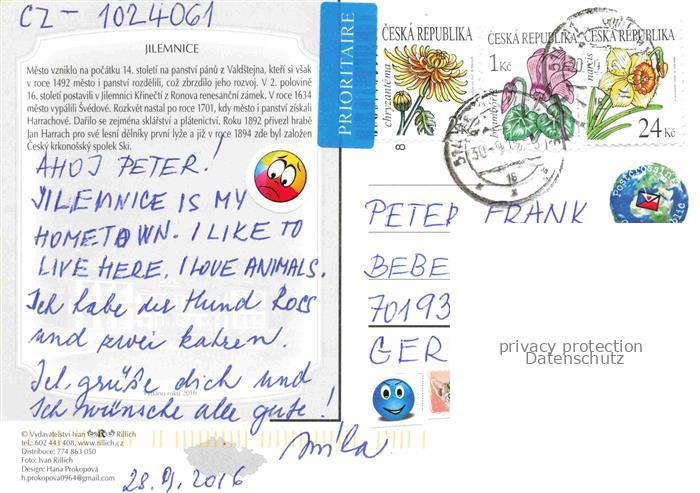 CZ - 1024061
JILEMNICE
Město vzniklo na počátku 14. století na panství pánů z Valdštejna, kteří si však
v roce 1492 město i panství rozdělili, což zbrzdilo jeho rozvoj. V 2. polovině
16. století postavili v Jilemnici Křinečtí z Ronova renesanční zámek. V roce 1634
město vypálili Švédové. Rozkvět nastal po roce 1701, kdy město i panství získali
Harrachové. Dařilo se zejména sklářství a plátenictví. Roku 1892 přivezl hrabě
Jan Harrach pro své lesní dělníky první lyže a již v roce 1894 zde byl založen
Český krkonošský spolek Ski.
AHOJ PETER!
JILEMNICE IS MY
HOMETOWN. I LIKE TO
LIVE HERE, I LOVE ANIMALS.
Ich habe der Hund Ross
und zwei katzen.
Ich grüße dich und
Ich wünsche alle gute!
Mila
28.9. 2016
Vydáno roku 2016
© Vydavatelství Ivan Rillich
tel.: 602 443 408, www.rillich.cz
Distribuce: 774 863 050
Foto: Ivan Rillich
Design: Hana Prokopová
h.prokopova0964@gmail.com
PRIORITAIRE
ČESKÁ REPUBLIKA
chryzantéma
8
ČESKÁ REPUBLIKA
1 Kč
brambořík
ČESKÁ REPUBLIKA
narcis
24 Kč
Postcrossing
PETER FRANK
BEBE
70193
GER
privacy protection
Datenschutz